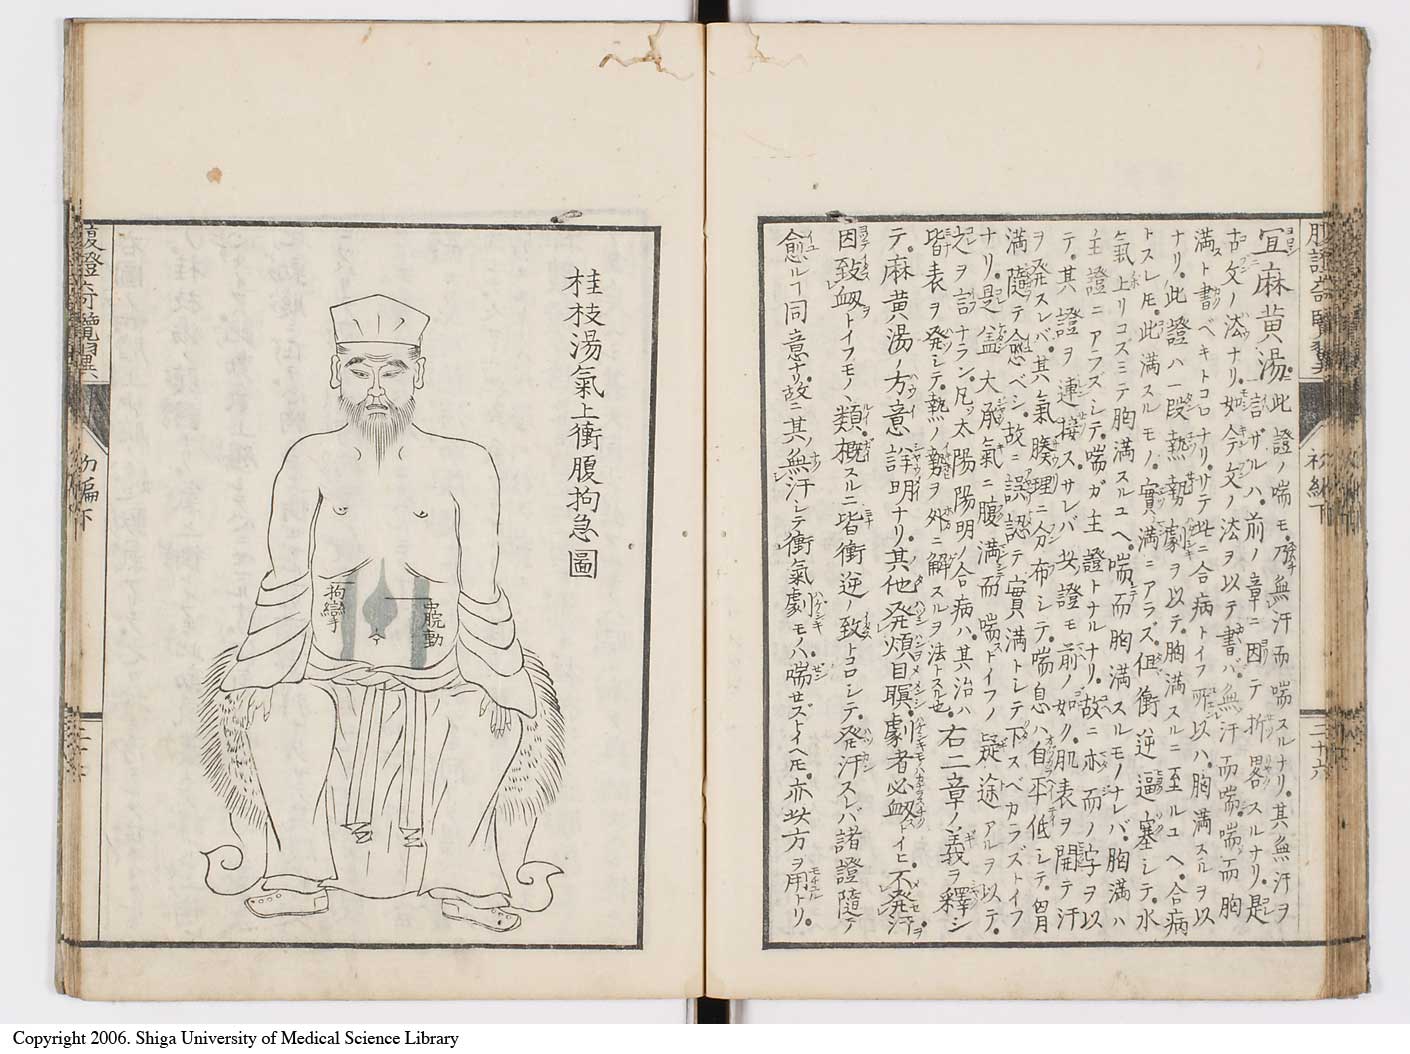 宜麻黄湯ニ此證ノ喘モ乃チ無汗而喘スルナリ其無汗ヲ
言ザルハ前ノ章ニ因テ折畧スルナリ是
古文ノ法ナリ如シ今文ノ法ヲ以テ書バ無汗而喘喘而胸
満スト書ベキトコロナリサテ此ニ合病トイフ所以ハ胸満スルヲ以
ナリ此證ハ一段熱勢劇ヲ以テ胸満スルニ至ルユヘ合病
トスレ𪜈此満スルモノ實満ニアラズ但衝逆逼塞シテ水
氣上リコズミテ胸満スルユヘ喘而胸満スルモノナレバ胸満ハ
主證ニアラズシテ喘ガ主證トナルナリ故ニ亦而ノ字ヲ以
テ其證ヲ連接スサレバ此證モ前ノ如ク肌表ヲ開テ汗
ヲ発スレバ其氣腠理ニ分布シテ喘息ハ自平低シテ胃
満隨テ愈ベシ故ニ誤認テ實満トシテ下スベカラズトイフ
ナリ是レ盖大承氣ニ腹満而喘ストイフノ疑途アルヲ以テ
之ヲ言ナラン凡ソ太陽陽明ノ合病ハ其治ハ
皆表ヲ発シテ熱ノ勢ヲ外ニ解スルヲ法トス也右二章ノ義ヲ釋シ
テ麻黄湯ノ方意詳明ナリ其他発煩目瞑劇者必衂トイヒ不発汗
因致衂トイフモノ類概スルニ皆衝逆ノ致トコロシテ発汗スレバ諸證隨テ
愈ルヿ同意ナリ故ニ其無汗シテ衝氣劇モノハ喘セズトイヘ𪜈亦此方ヲ用トリ
腹證奇覽翼
初編下
二十六
桂枝湯氣上衝腹拘急圖
拘攣
中脘動
腹證奇覽翼
初編下
Copyright 2006. Shiga University of Medical Science Library